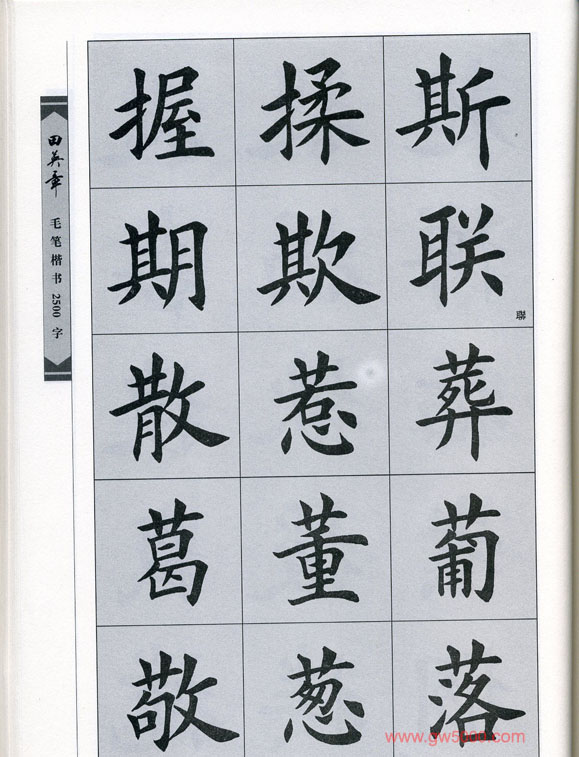 田英章 毛笔楷书2500字
握 揉 斯
期 欺 联
聯
散 惹 葬
葛 董 葡
敬 葱 落
www.gw5000.com